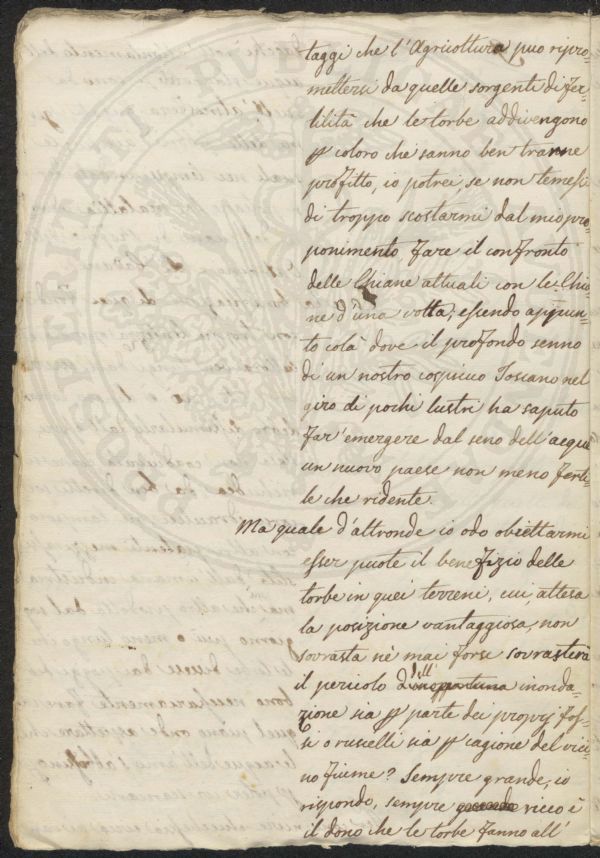 taggi che l'Agricoltura puo ripro=
mettersi da quelle sorgenti di fer=
tilità che le torbe addivengono
p coloro che sanno ben trarne
profitto, io potrei, se non temessi
di troppo scostarmi dal mio pro=
ponimento, fare il confronto
delle Chiane attuali con le Chia=
ne d'una volta, essendo appun=
to colà dove il profondo senno
di un nostro cospicuo Toscano nel
giro di pochi lustri ha saputo
far'emergere dal seno dell'acque
un nuovo paese non meno ferti=
le che ridente.
Ma quale d'altronde io odo obiettarmi
esser puote il benefizio delle
torbe in quei terreni, cui, attesa
la posizione vantaggiosa, non
sovrasta nè mai forse sovrasterà
il pericolo dell' inonda=
zione sia p parte dei proprj fos=
si o ruscelli sia p cagione del vici=
no fiume? Sempre grande, io
rispondo, sempre ricco è
il dono che le torbe fanno all'